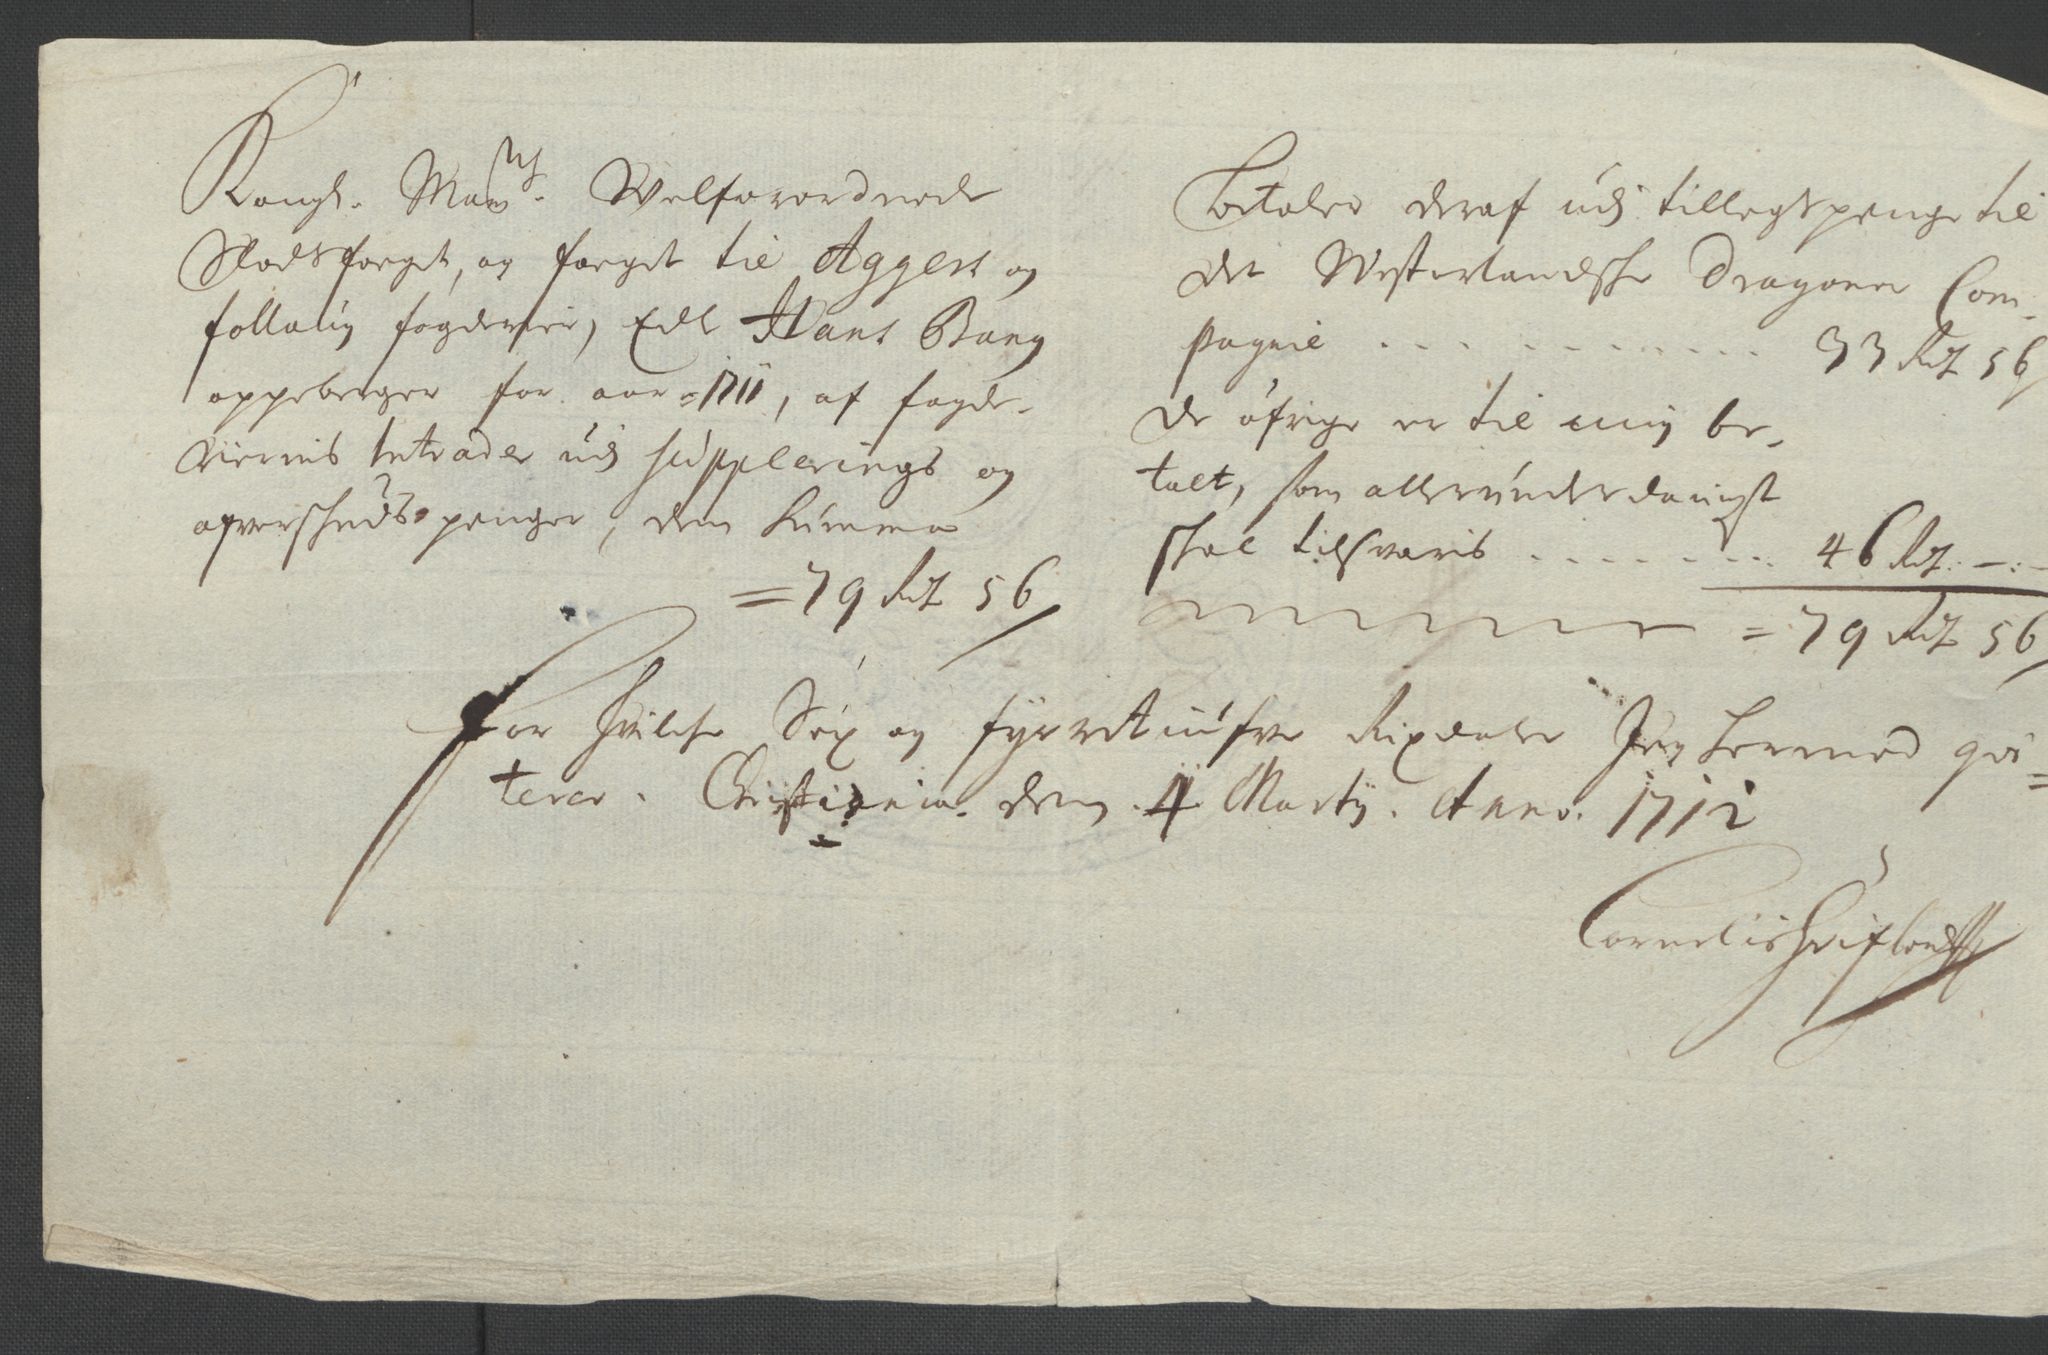 Kongl. May.ts Welforordnede
Slodtsfoget, og foget til Aggers og
folloug fogderier, Edle Hans Bang
oppeberger for aar 1711, af fogde-
riernis Intrader udj supplerings og
afversheds penger, dem Summa
= 79 Rd 56
betaler deraf udj tillegs penge til
det Westerlandsche Dragoner Com-
pagnie . . . . . . . . . . . 33 Rd 56
de öfrige er til mig be-
talt, som allerunderdanigst
skal tilsvaris . . . . . . . . 46 Rd: - : -
= 79 Rd 56
for hvilche Sex og fyrretiufve Rixdaler Jeg hermed qvi=
terer. Christiania den 4 Marty. Anno. 1712
Cornelis